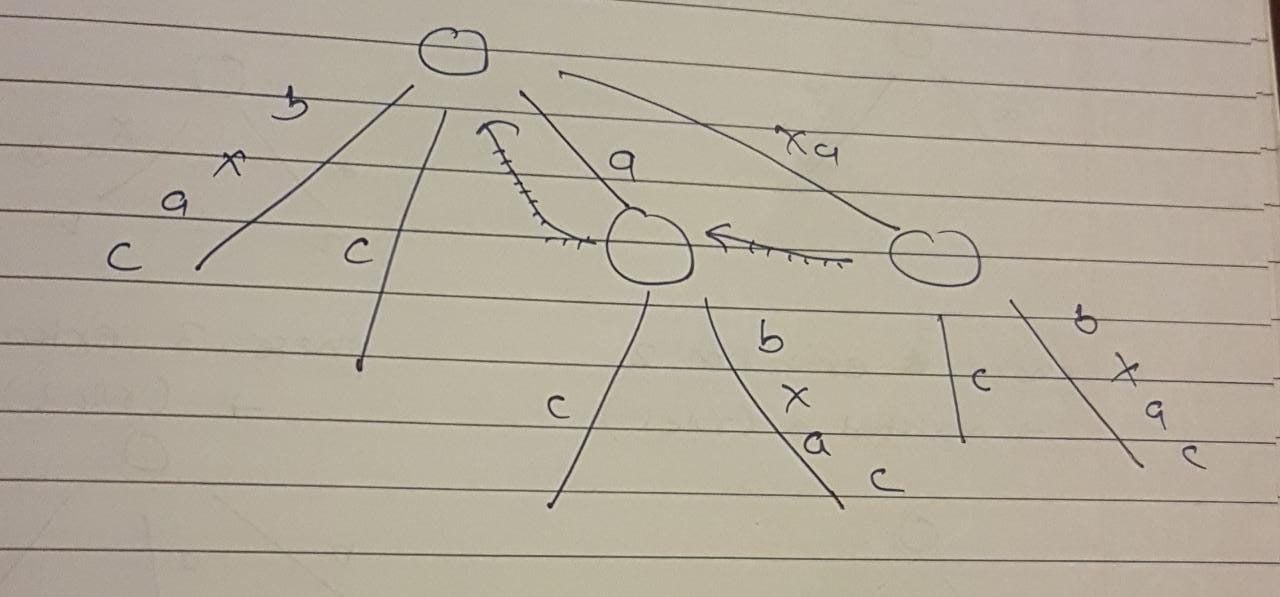 b
x
a
c
c
a
xa
c
b
x
a
c
c
b
x
a
c